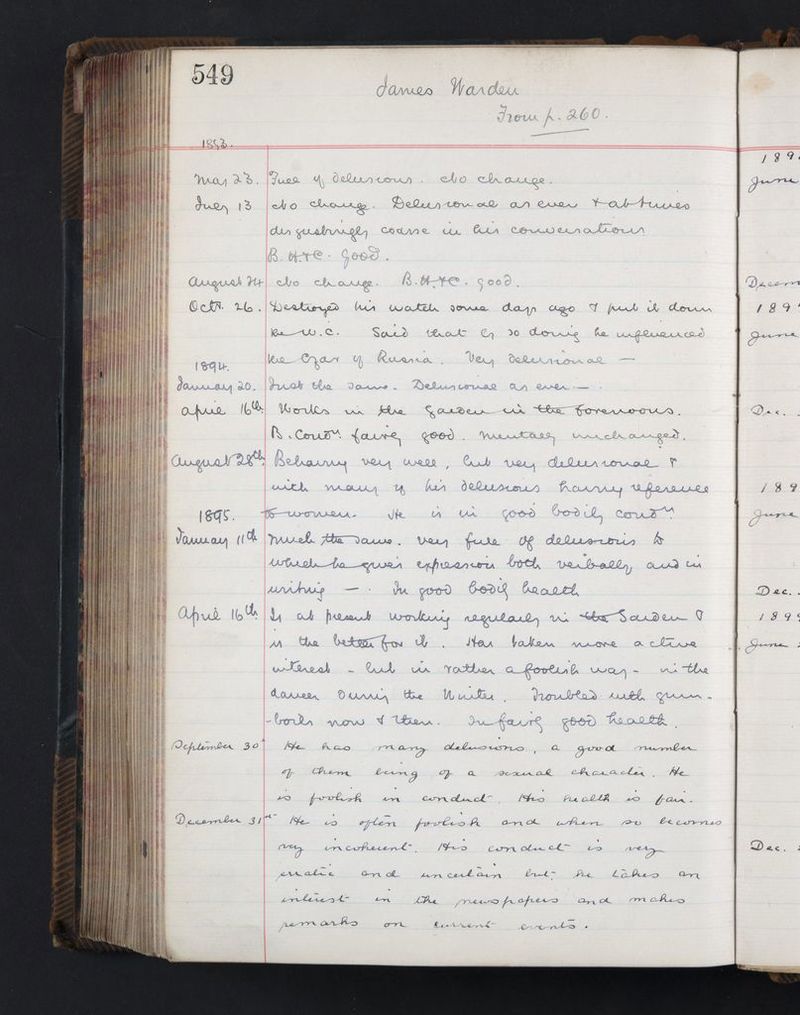 549
James Warden
From p. 260.
1893.
May 23. Full of delusions. No change.
July 13 No change. Delusional as ever & at times
disgustingly coarse in his conversation
B.H. & C. Good.
August 24 No change. B.H. & C. good.
Octr. 26. Destroyed his watch some days ago & put it down
the W.C. Said that by so doing he influenced
the Czar of Russia. Very delusional —
1894.
January 20. Just the same. Delusional as ever —.
April 16th. Works in the Garden in the forenoons.
B. Condn. fairly good. Mentally unchanged.
August 28th. Behaving very well, but very delusional &
with many of his delusions having reference
to women. He is in good bodily condn.
1895.
January 11th Much the same. Very full of delusions to
which he gives expression both verbally and in
writing —. In good bodily health
April 16th Is at present working regularly in the Garden &
is the better for it. Has taken more active
interest - but in rather a foolish way - in the
dances during the Winter. Troubled with gum-
-boils now & then. In fairly good health.
September 30t He has many delusions, a good number
of them being of a sexual character. He
is foolish in conduct. His health is fair.
December 31st He is often foolish and when so becomes
very incoherent. His conduct is very
erratic and uncertain but he takes an
interest in the newspapers and makes
remarks on current events.
189
June
Decem
189
June
Dec.
189
June
Dec.
189
June
Dec.